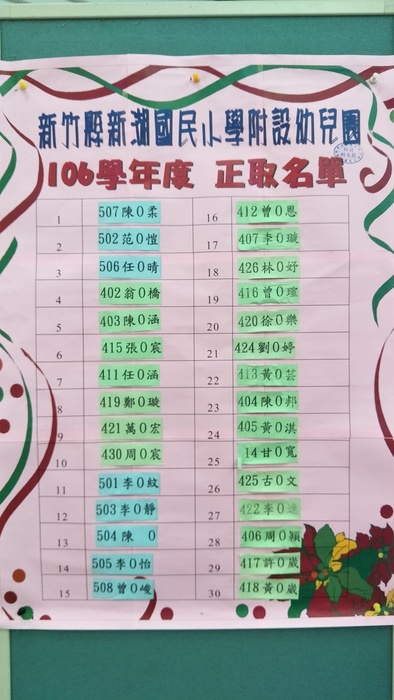 新竹縣新湖國民小學附設幼兒園
106學年度 正取名單
1 507陳O柔 16 412曾O恩
2 502范O愷 17 407李O璇
3 506任O晴 18 426林O妤
4 402翁O橋 19 416曾O瑄
5 403陳O涵 20 420徐O樂
6 415張O宸 21 424劉O婷
7 411任O涵 22 413黃O芸
8 419鄭O璇 23 404陳O邦
9 421萬O宏 24 405黃O淇
10 430周O宸 25 14甘O寬
11 501李O紋 26 425古O文
12 503李O靜 27 422李O
13 504陳 O 28 406周O穎
14 505李O怡 29 417許O葳
15 508曾O峻 30 418黃O葳